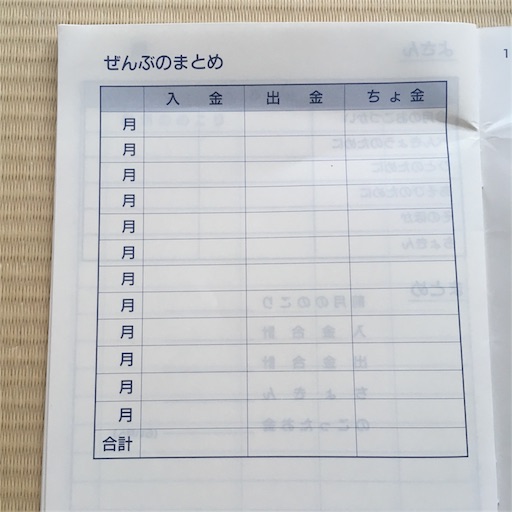 ぜんぶのまとめ
入 金 出 金 ちょ金
月
月
月
月
月
月
月
月
月
月
月
月
合計
1